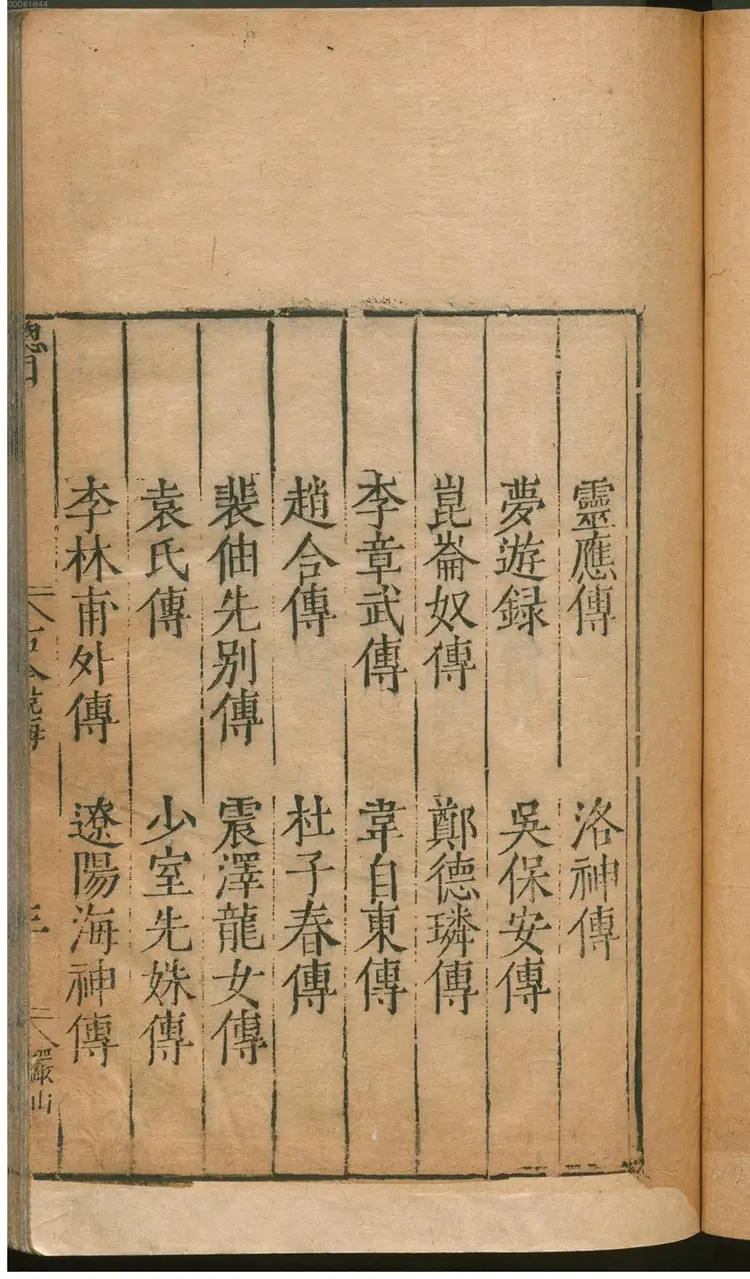 00061844
靈應傳 洛神傳
夢遊録 吳保安傳
崑崙奴傳 鄭德璘傳
李章武傳 韋自東傳
趙合傳 杜子春傳
裴伷先别傳 震澤龍女傳
袁氏傳 少室先姝傳
李林甫外傳 遼陽海神傳
總目
三
巖山